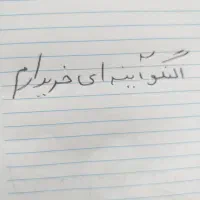 النگو آینه ای خریدارم